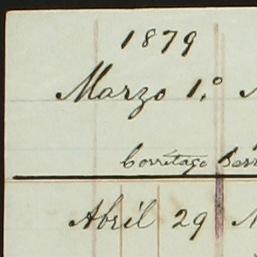 1879
Marzo 1.º
Corretage
Abril 29